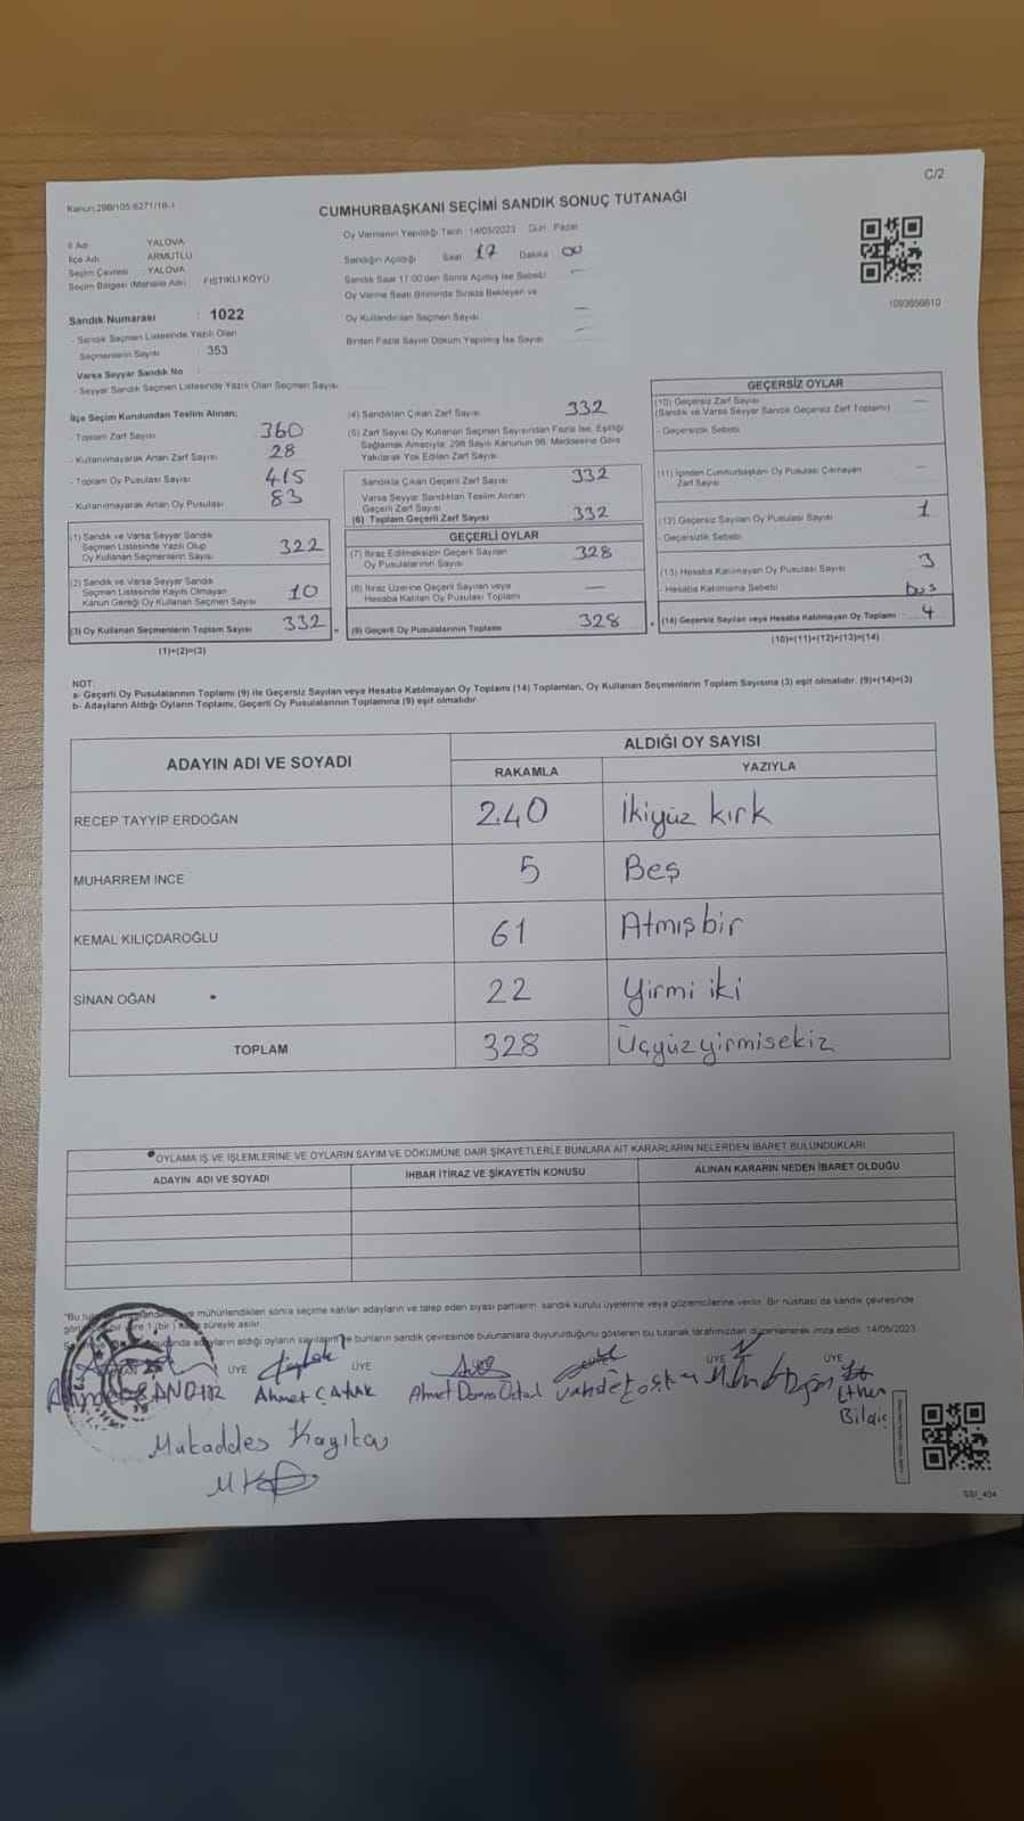 C/2
Kanun:298/105-6271/18-1
CUMHURBAŞKANI SEÇİMİ SANDIK SONUÇ TUTANAĞI
İl Adı YALOVA
İlçe Adı ARMUTLU
Seçim Çevresi YALOVA
Seçim Bölgesi (Mahalle Adı) FISTIKLI KÖYÜ
Sandık Numarası : 1022
- Sandık Seçmen Listesinde Yazılı Olan
Seçmenlerin Sayısı : 353
Varsa Seyyar Sandık No
- Seyyar Sandık Seçmen Listesinde Yazılı Olan Seçmen Sayısı
Oy Vermenin Yapıldığı Tarih :14/05/2023 Gün: Pazar
Sandığın Açıldığı Saat 17 Dakika 00
Sandık Saat 17:00'den Sonra Açılmış İse Sebebi
Oy Verme Saati Bitiminde Sırada Bekleyen ve
Oy Kullandırılan Seçmen Sayısı
Birden Fazla Sayım Döküm Yapılmış İse Sayısı
1093656610
İlçe Seçim Kurulundan Teslim Alınan;
- Toplam Zarf Sayısı 360
- Kullanılmayarak Artan Zarf Sayısı 28
- Toplam Oy Pusulası Sayısı 415
- Kullanılmayarak Artan Oy Pusulası 83
(1) Sandık ve Varsa Seyyar Sandık
Seçmen Listesinde Yazılı Olup
Oy Kullanan Seçmenlerin Sayısı 322
(2) Sandık ve Varsa Seyyar Sandık
Seçmen Listesinde Kayıtlı Olmayan
Kanun Gereği Oy Kullanan Seçmen Sayısı 10
(3) Oy Kullanan Seçmenlerin Toplam Sayısı 332
(1)+(2)=(3)
(4) Sandıktan Çıkan Zarf Sayısı 332
(5) Zarf Sayısı Oy Kullanan Seçmen Sayısından Fazla İse, Eşitliği
Sağlamak Amacıyla, 298 Sayılı Kanunun 98. Maddesine Göre
Yakılarak Yok Edilen Zarf Sayısı
Sandıkta Çıkan Geçerli Zarf Sayısı 332
Varsa Seyyar Sandıktan Teslim Alınan
Geçerli Zarf Sayısı
(6) Toplam Geçerli Zarf Sayısı 332
GEÇERLİ OYLAR
(7) İtiraz Edilmeksizin Geçerli Sayılan
Oy Pusulalarının Sayısı 328
(8) İtiraz Üzerine Geçerli Sayılan veya
Hesaba Katılan Oy Pusulası Toplamı —
(9) Geçerli Oy Pusulalarının Toplamı 328
GEÇERSİZ OYLAR
(10) Geçersiz Zarf Sayısı —
(Sandık ve Varsa Seyyar Sandık Geçersiz Zarf Toplamı)
- Geçersizlik Sebebi
(11) İçinden Cumhurbaşkanı Oy Pusulası Çıkmayan
Zarf Sayısı —
(12) Geçersiz Sayılan Oy Pusulası Sayısı 1
- Geçersizlik Sebebi
(13) Hesaba Katılmayan Oy Pusulası Sayısı 3
- Hesaba Katılmama Sebebi
(14) Geçersiz Sayılan veya Hesaba Katılmayan Oy Toplamı 4
(10)+(11)+(12)+(13)=(14)
NOT:
a- Geçerli Oy Pusulalarının Toplamı (9) ile Geçersiz Sayılan veya Hesaba Katılmayan Oy Toplamı (14) Toplamları, Oy Kullanan Seçmenlerin Toplam Sayısına (3) eşit olmalıdır. (9)+(14)=(3)
b- Adayların Aldığı Oyların Toplamı, Geçerli Oy Pusulalarının Toplamına (9) eşit olmalıdır.
ADAYIN ADI VE SOYADI
ALDIĞI OY SAYISI
RAKAMLA YAZIYLA
RECEP TAYYİP ERDOĞAN 240 İkiyüz kırk
MUHARREM İNCE 5 Beş
KEMAL KILIÇDAROĞLU 61 Atmışbir
SİNAN OĞAN 22 Yirmi iki
TOPLAM 328 Üçyüzyirmisekiz
OYLAMA İŞ VE İŞLEMLERİNE VE OYLARIN SAYIM VE DÖKÜMÜNE DAİR ŞİKAYETLERLE BUNLARA AİT KARARLARIN NELERDEN İBARET BULUNDUKLARI
ADAYIN ADI VE SOYADI İHBAR İTİRAZ VE ŞİKAYETİN KONUSU ALINAN KARARIN NEDEN İBARET OLDUĞU
mühürlendikten sonra seçime katılan adayların ve talep eden siyasi partilerin sandık kurulu üyelerine veya gözlemcilerine verilir. Bir nüshası da sandık çevresinde
süreyle asılır.
adayların aldığı oyların sayılarını ve bunların sandık çevresinde bulunanlara duyurulduğunu gösteren bu tutanak tarafımızdan düzenlenerek imza edildi. 14/05/2023
T.C.
ÜYE ÜYE ÜYE ÜYE
Ahmet ÇANDIR Ahmet Ethem
Bilgiç
Mukaddes Kayıkçı
SSI_404